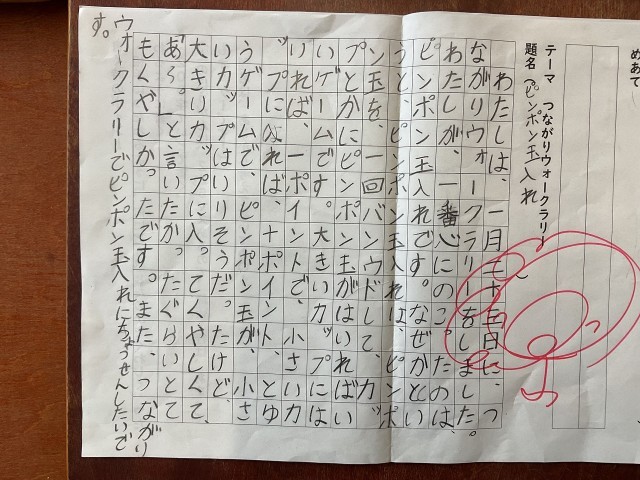 めあて
テーマ つながりウォークラリー
題名(ピンポン玉入れ
わたしは、一月二十五日に、つ
ながりウォークラリーをしました。
わたしが、一番心にのこったのは、
ピンポン玉入れです。なぜかとい
うと、ピンポン玉入れは、ピンポ
ン玉を、一回バンウドして、カッ
プとかにピンポン玉がはいればい
いゲームです。大きいカップには
いれば、一ポイントで、小さいカ
ップになれば、十ポイント、とゆ
うゲームで、ピンポン玉が、小さ
いカップはいりそうだったけど、
大きいカップに入ってくやしくて、
「あ〜。」と言いたかったぐらいとて
もくやしかったです。また、つながり
ウォークラリーでピンポン玉入れにちょうせんしたいで
す。